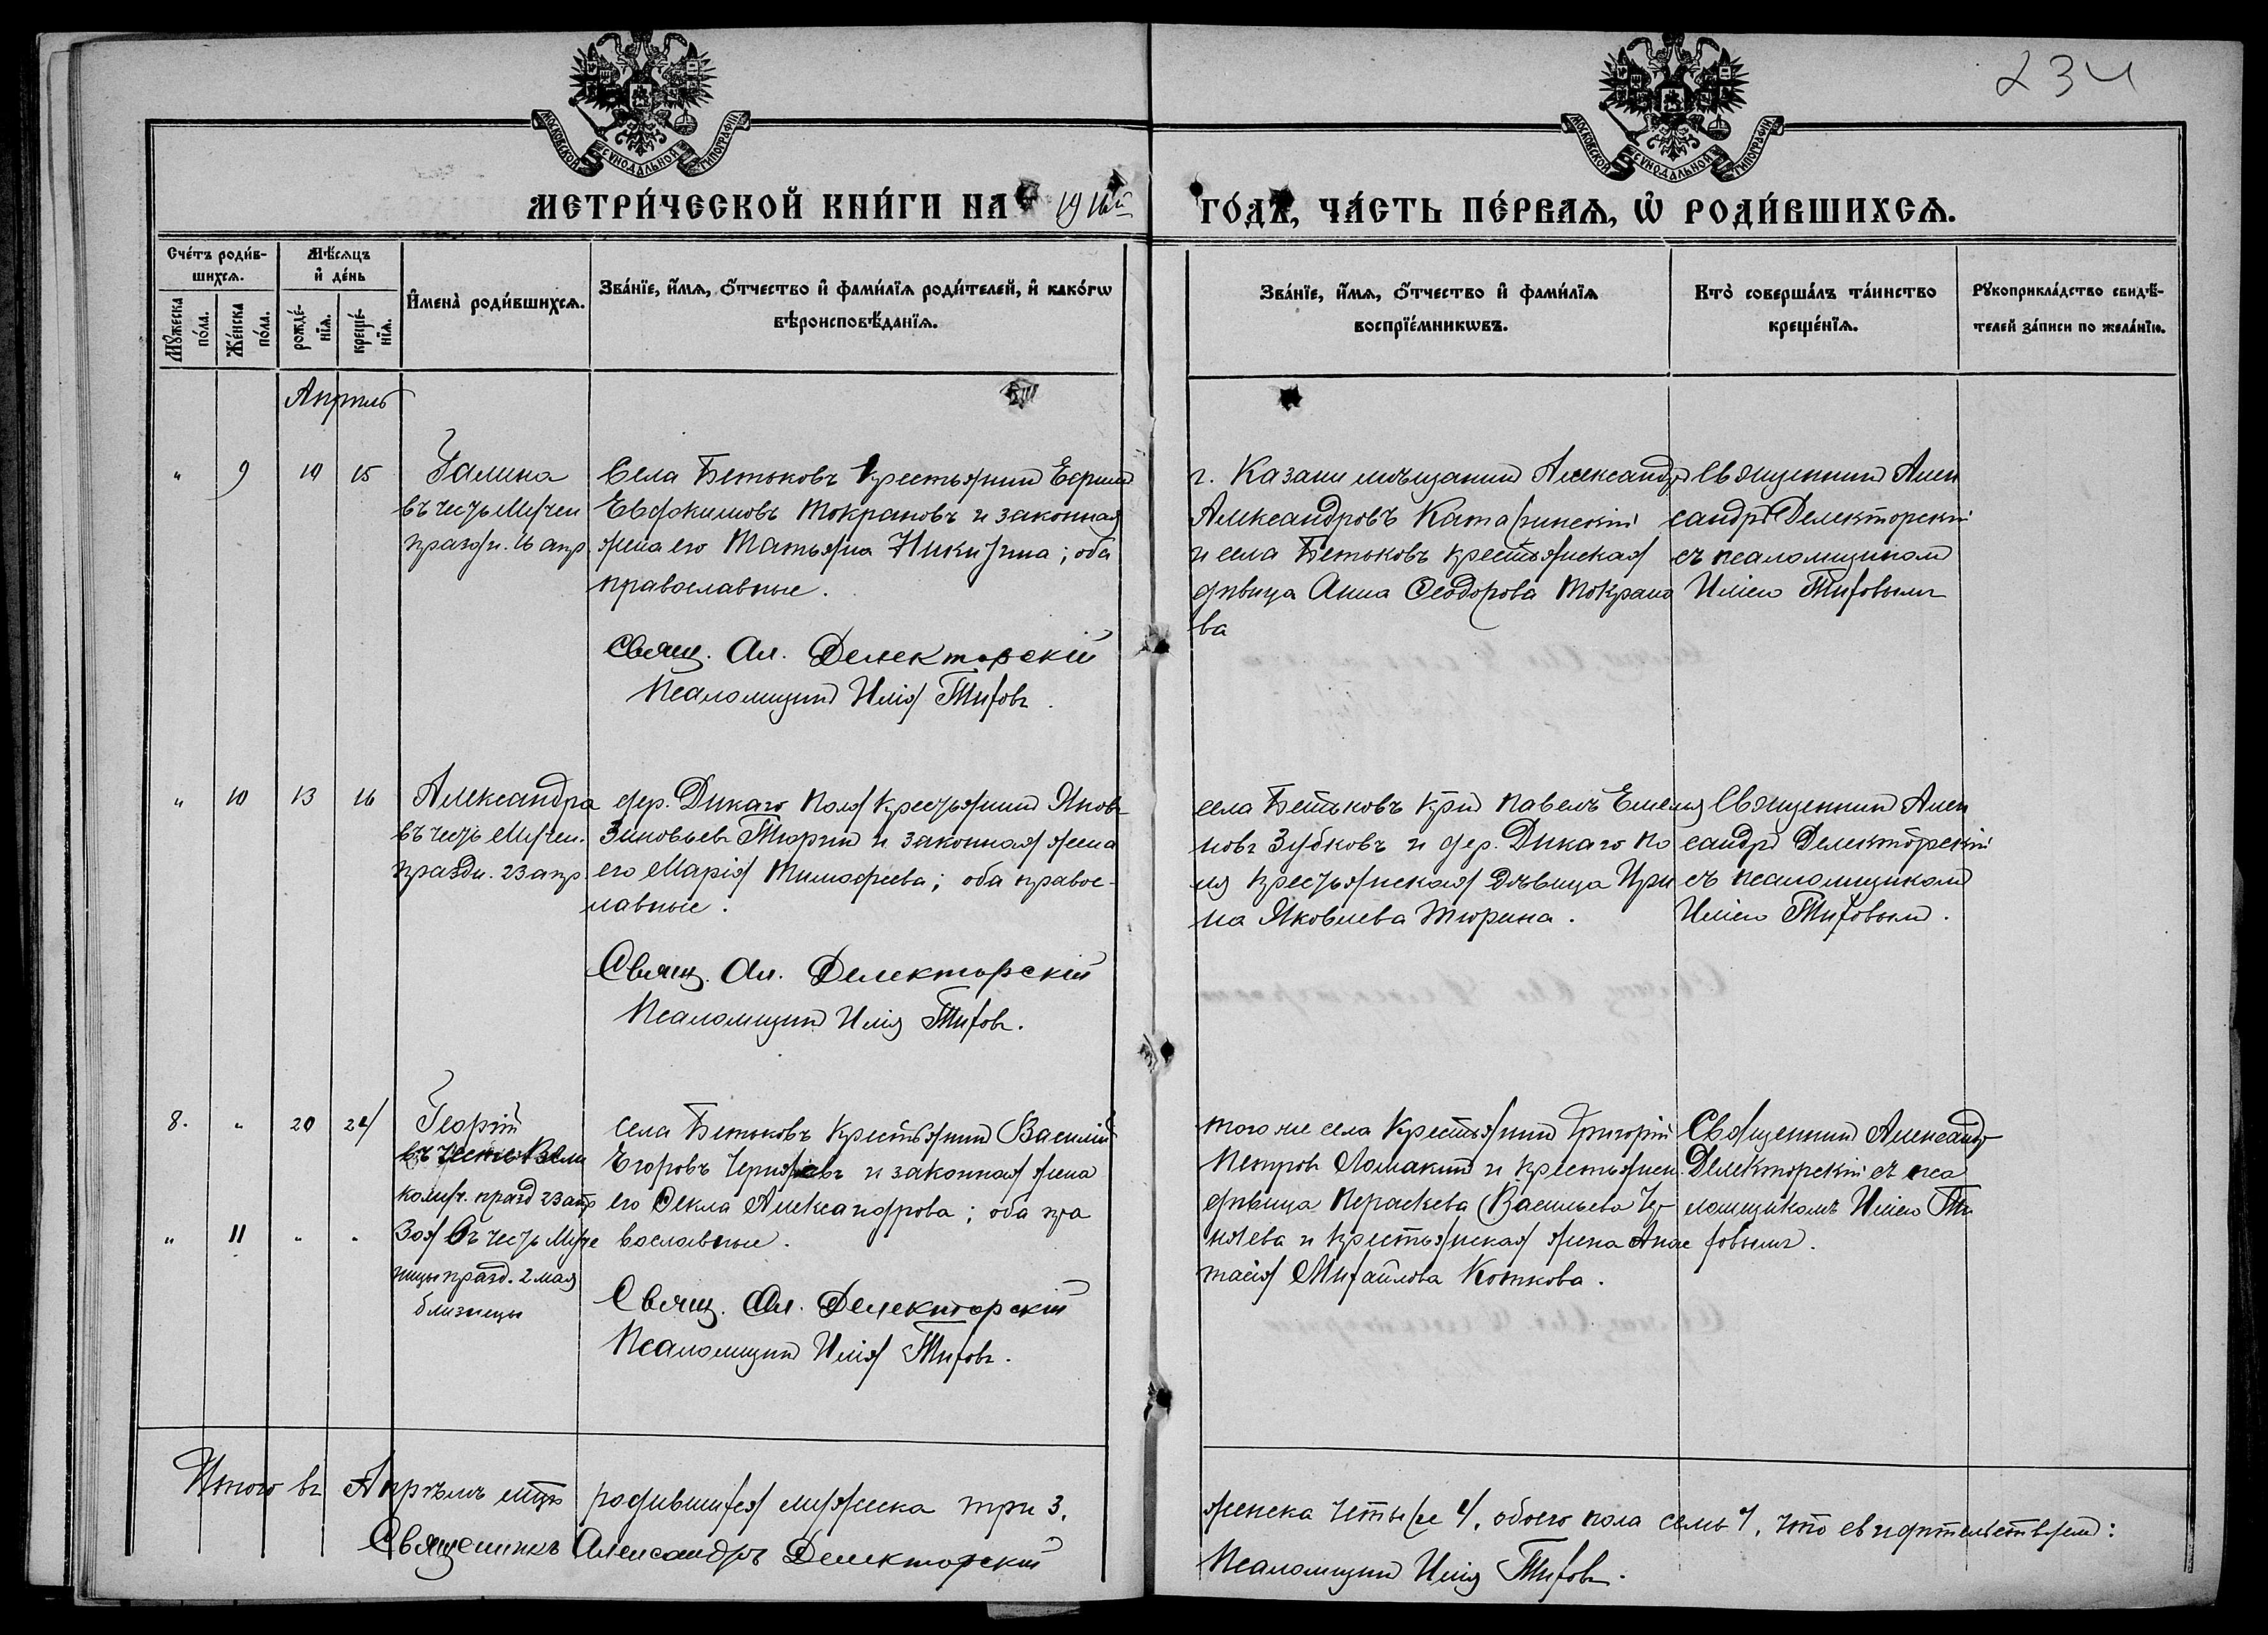 234
МОСКОВСКОЙ СѴНОДАЛЬНОЙ ТИПОГРАФІИ
МОСКОВСКОЙ СѴНОДАЛЬНОЙ ТИПОГРАФІИ
МЕТРИ́ЧЕСКОЙ КНИ́ГИ НА 1916й ГО́ДЪ, ЧА́СТЬ ПЕ́РВАѦ, Ѡ҆ РОДИ́ВШИХСѦ.
Сче́тъ роди́в-
шихсѧ.
Мꙋ́жеска
по́ла.
Же́нска
по́ла.
Мѣ́сѧцъ
и҆ де́нь
рожде́-
нїѧ.
креще́-
нїѧ.
И҆мена̀ роди́вшихсѧ.
Зва́нїе, и҆́мѧ, ѻ҆́тчество и҆ фами́лїѧ роди́телей, и҆ како́гѡ
вѣроисповѣ́данїѧ.
Зва́нїе, и҆́мѧ, ѻ҆́тчество и҆ фами́лїѧ
воспрїе́мникѡвъ.
Кто̀ соверша́лъ та́инство
креще́нїѧ.
Рꙋкоприкла́дство свидѣ́-
телей за́писи по жела́нїю.
Апрѣль
" 9 10 15
Галина
въ честь Мучен
праздн. 16 апр.
Села Бетьковъ Крестьянин
Евдокимовъ Токрановъ и законная
жена его Татьяна Никитина; оба
православные.
Свящ. Ал. Делекторскій
Псаломщик Илія Титовъ.
г. Казани мѣщанин Александр
Александровъ Катаринскій
и села Бетьковъ крестьянская
дѣвица Анна Ѳеодорова Токрано
ва
Священник Алек
сандр Делекторскій
съ псаломщиком
Иліею Титовымъ
" 10 13 16
Александра
въ честь Мучен.
праздн. 23 апр.
дер. Дикаго Поля крестьянин Яковъ
Зиновьев Тюрин и законная жена
его Марія Тимофеева; оба правос-
лавные.
Свящ. Ал. Делекторскій
Псаломщик Илія Титовъ.
села Бетьковъ кр͠н Павелъ Емелья
новъ Зубковъ и дер. Дикаго По
ля крестьянская дѣвица Ири
на Яковлева Тюрина.
Священник Алек
сандр Делекторскій
съ псаломщиком
Иліею Титовым.
8. " 20 24
Георгій
въ честь Вели
комуч. празд 23 апр
" 11 " "
Зоя въ честь Муче
ницы празд. 2 мая
близнецы
села Бетьковъ крестьянин Василій
Егоровъ Черняевъ и законная жена
его Ѳекла Александрова; оба пра
вославные.
Свящ. Ал. Делекторскій
Псаломщик Илія Титовъ.
того же села Крестьянин Григорій
Петров Ломакин и крестьянск.
дѣвица Параскева Васильева Чер
няева и крестьянская жена Анас
тасія Михайлова Коткова.
Священник Александр
Делекторскій съ пса
ломщикомъ Иліею Ти
товымъ.
Итого въ Апрѣлѣ мцѣ родившихся мужеска три 3, женска четыре 4, обоего пола семь 7, что свидѣтельствуем:
Священникъ Александръ Делекторскій
Псаломщик Илія Титовъ.